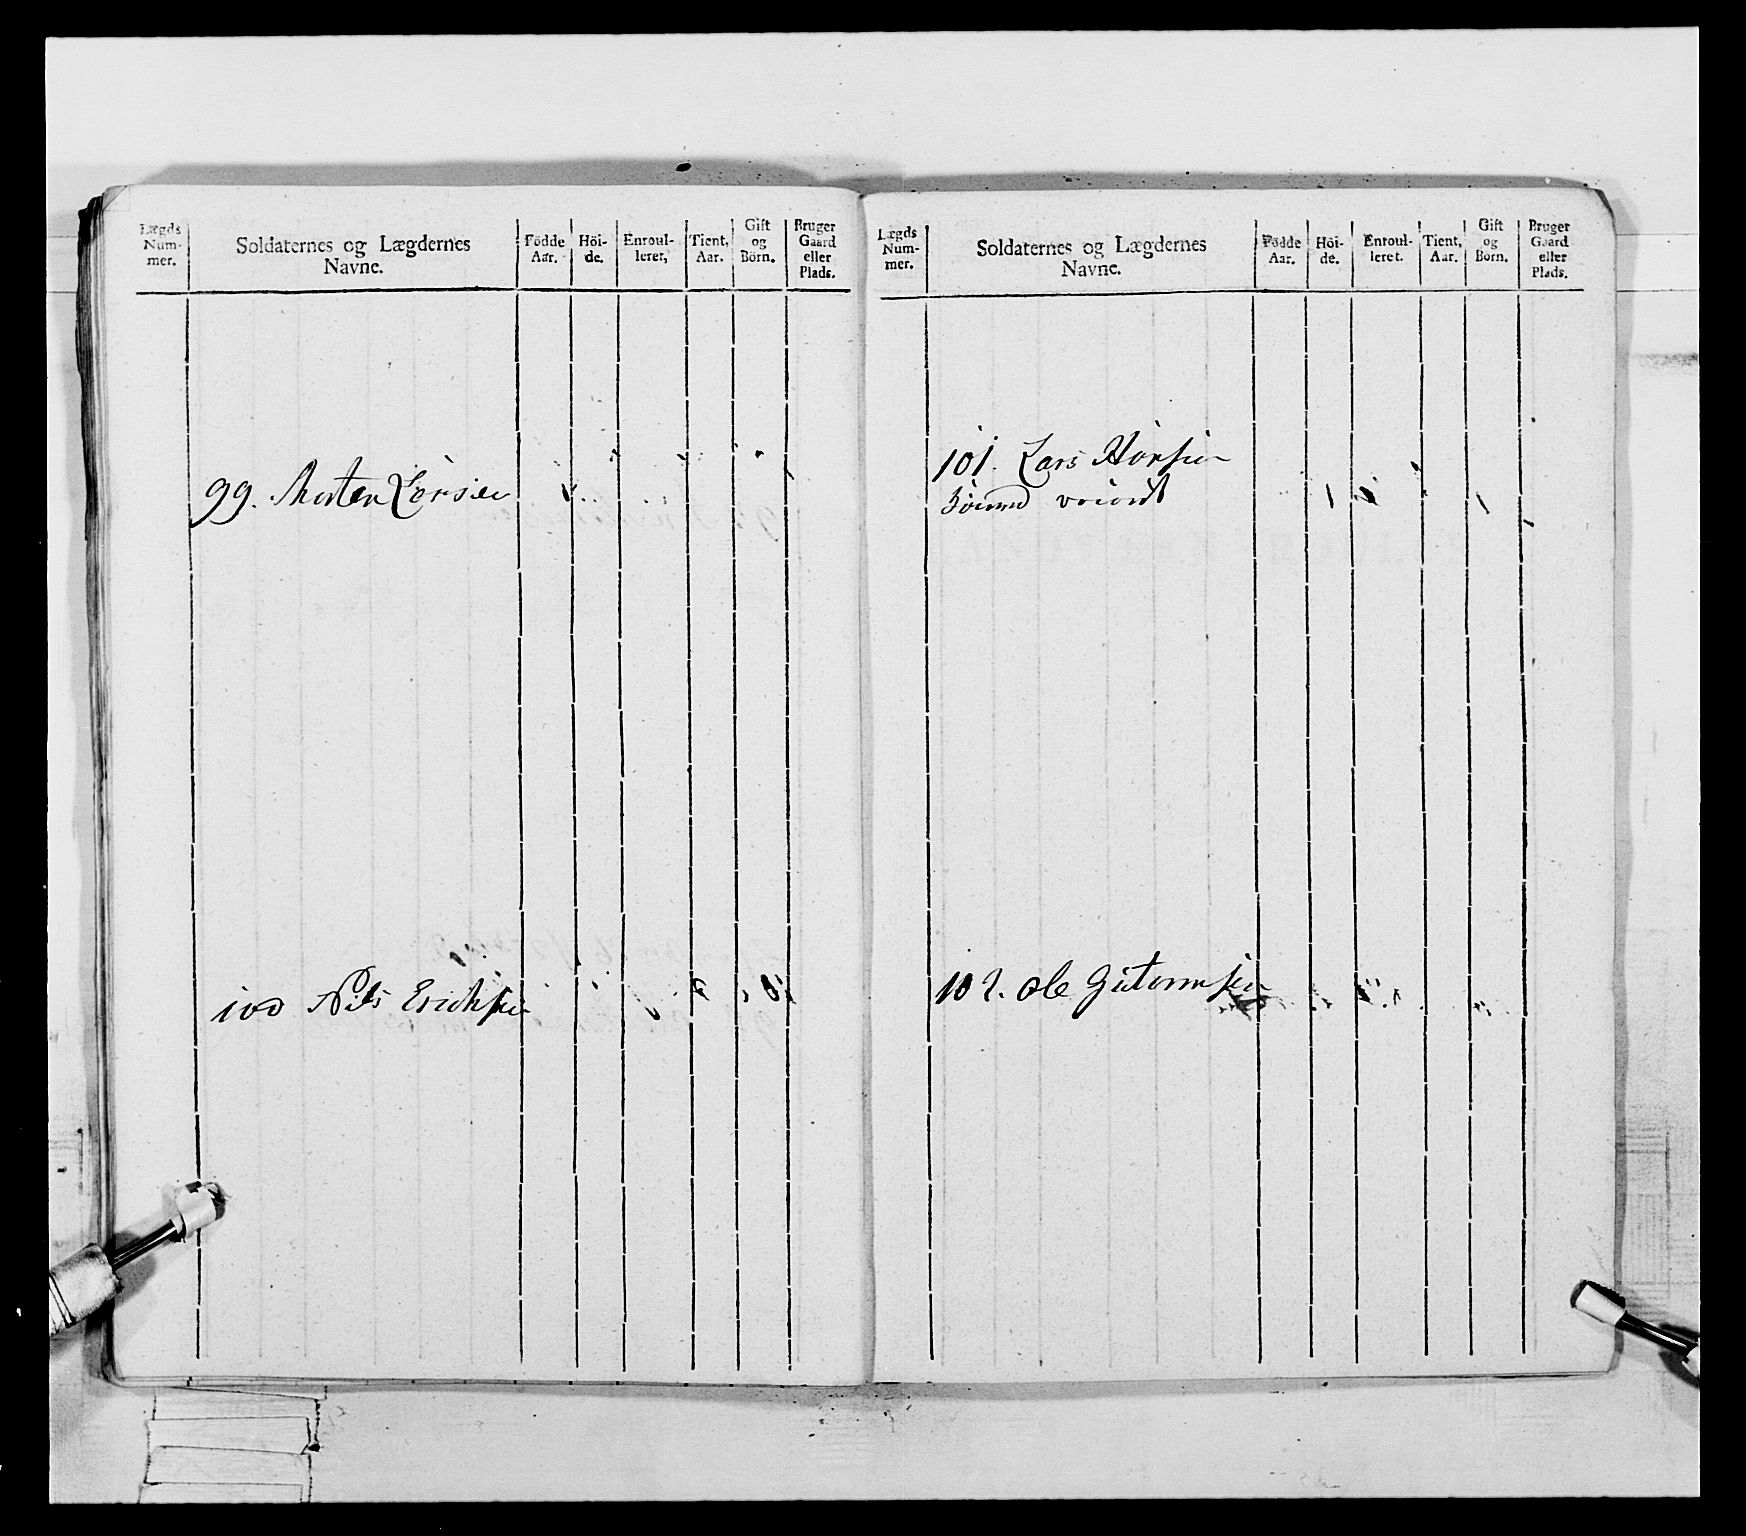 Lægds Num- mer.
Soldaternes og Lægdernes Navne.
Födde Aar.
Höi- de.
Enroul- leret,
Tient, Aar.
Gift og Börn.
Bruger Gaard eller Plads.
99. Morten Larsen
100 Nils Erichsen
Lægds Num- mer.
Soldaternes og Lægdernes Navne.
Födde Aar.
Höi- de.
Enroul- leret.
Tient, Aar.
Gift og Börn.
Bruger Gaard eller Plads.
101. Lars
102. Ole